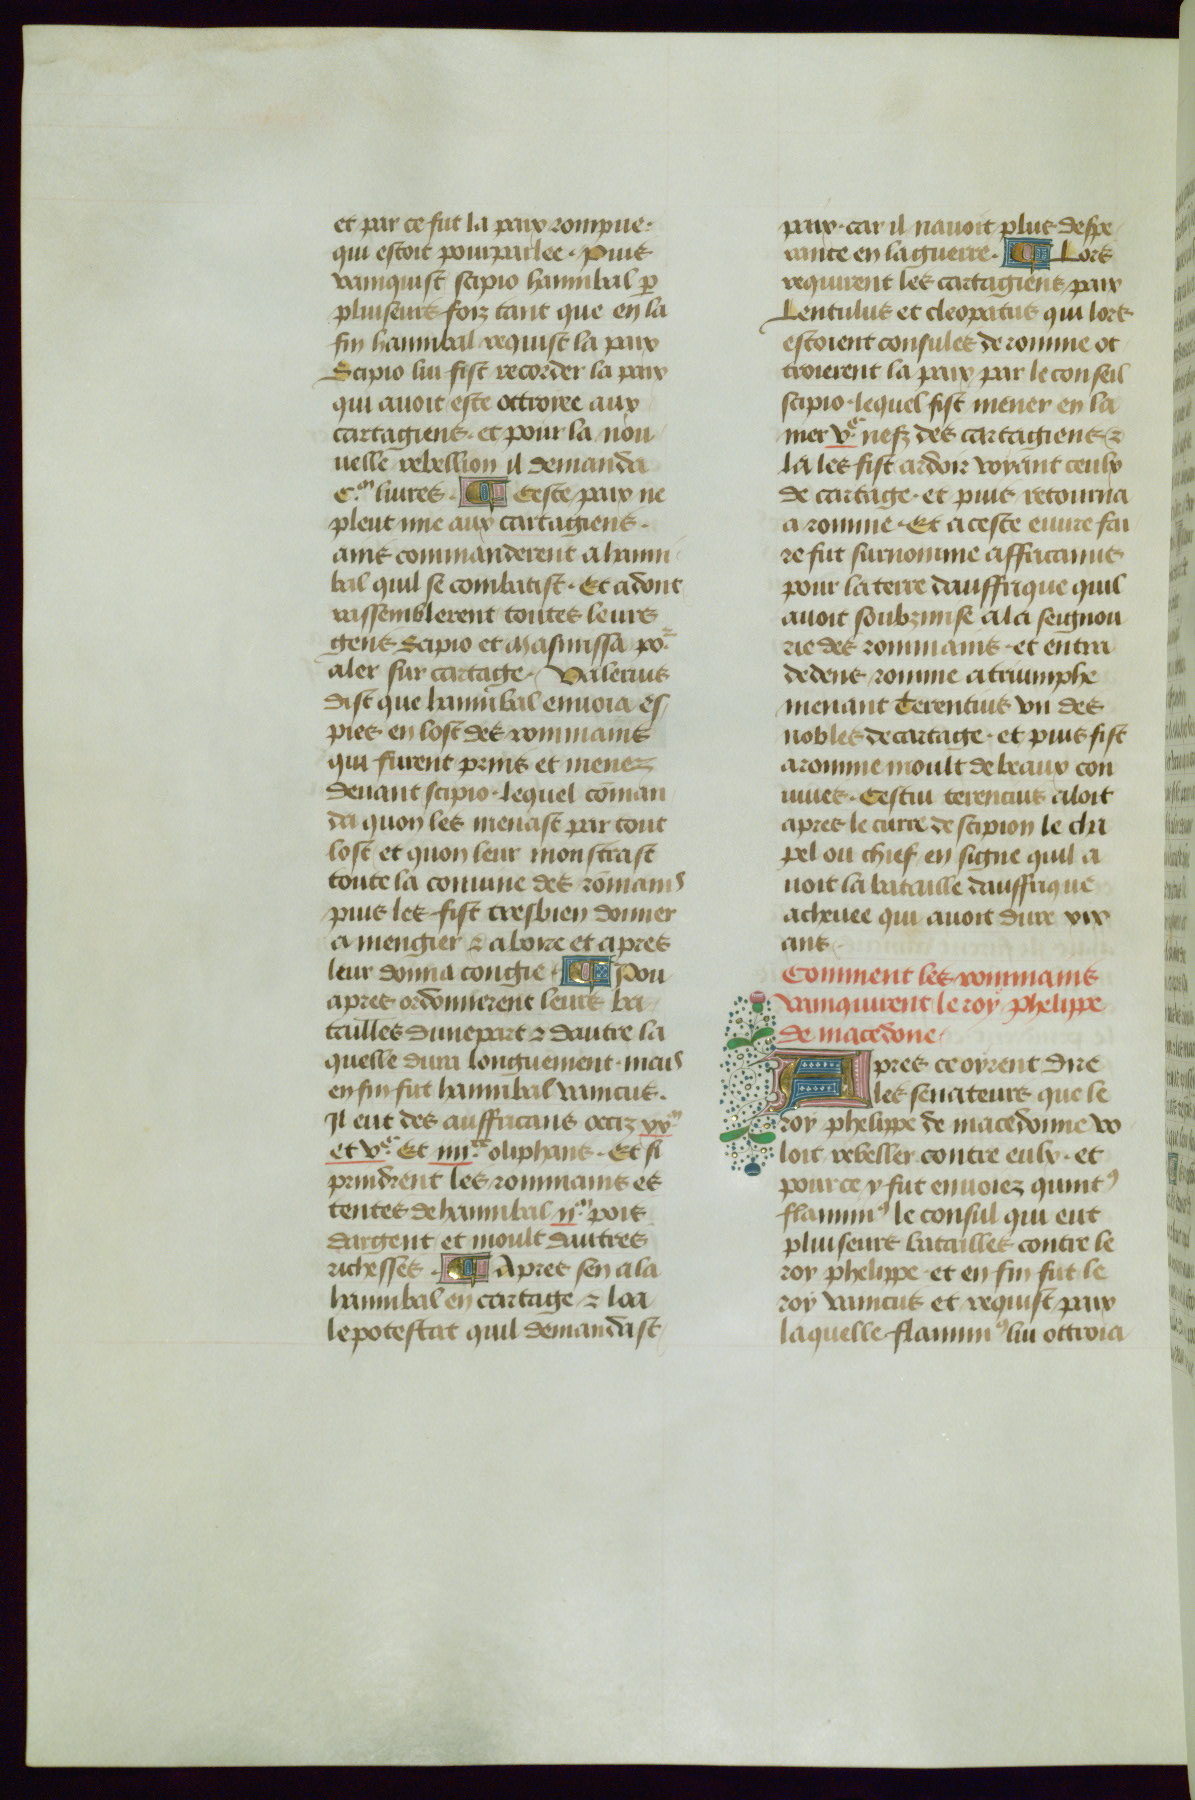 et par ce fut la paix rompue.
qui estoit pourparlee. Puis
vainquist scipio hannibal p̲
pluiseurs foiz tant que en la
fin hannibal requist la paix
Scipio lui fist recorder la paix
qui auoit este ottroyee aux
cartagiens. et pour la nou
uelle rebellion il demanda
C.m liures. Ceste paix ne
pleut mie aux cartagiens.
ains commanderent a hanni
bal quil se combatist. Et adont
rassemblerent toutes leurs
gens Scipio et Masinissa po.r
aler sur cartage. Valerius
dist que hannibal enuoia es
pies en lost des rommains
qui furent prins et menez
deuant scipio. lequel cōman
da quon les menast par tout
lost et quon leur monstrast
toute la conuine des rōmains
puis les fist tresbien donner
a mengier ⁊ a boire et apres
leur donna congie. Pou
apres ordonnerent leurs ba
tailles dune part ⁊ dautre la
quelle dura longuement. mais
en fin fut hannibal vaincus.
Il eut des auffricans occiz xx.m
et v.c Et iiii.xx oliphans. Et si
prindrent les rommains es
tentes de hannibal ii.m pois
dargent et moult dautres
richesses. Apres sen ala
hannibal en cartage ⁊ loa
le potestat quil demandast
paix. car il nauoit plus despe
rance en la guerre. Lors
requirent les cartagiens paix
Lentulus et cleopatus qui lors
estoient consules de romme ot
troierent la paix par le conseil
scipio. lequel fist mener en la
mer v.c nefz des cartagiens ⁊
la les fist ardoir voyant ceulx
de cartage. et puis retourna
a romme. Et a ceste euure fai
re fut surnomme affricanus
pour la terre dauffrique quil
auoit soubzmise a la seignou
rie des rommains. et entra
dedens romme a triumphe
menant Terentius vn des
nobles de cartage. et puis fist
a romme moult de beaux con
uiues. Cestui terencius aloit
apres le curre de scipion le cha
pel ou chief en signe quil a
uoit la bataille dauffrique
acheuee qui auoit dure xix
ans
Comment les rommains
vainquirent le roy phelippe
de macedone
Apres ce oyrent dire
les senateurs que le
roy phelippe de macedonne vo
loit rebeller contre eulx. et
pour ce y fut enuoiez quintꝰ
flaminꝰ le consul qui eut
pluiseurs batailles contre le
roy phelippe. et en fin fut le
roy vaincus et requist paix
laquelle flaminꝰ lui ottroia